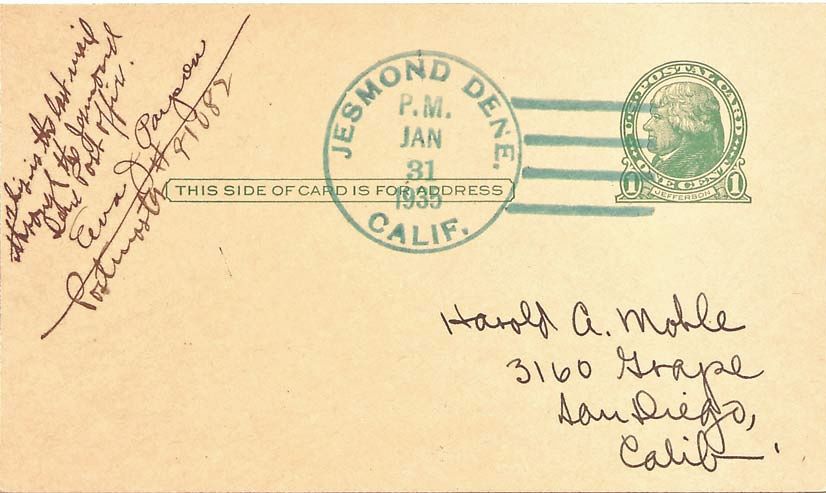 This is the last mail
through the Jesmond
Dene Post office.
Eva J.
Postmaster
JESMOND DENE.
P.M.
JAN
31
1935
CALIF.
THIS SIDE OF CARD IS FOR ADDRESS
U.S. POSTAL CARD
1 JEFFERSON 1
ONE CENT
Harold A. Moble
3160 Grape
San Diego,
Calif.